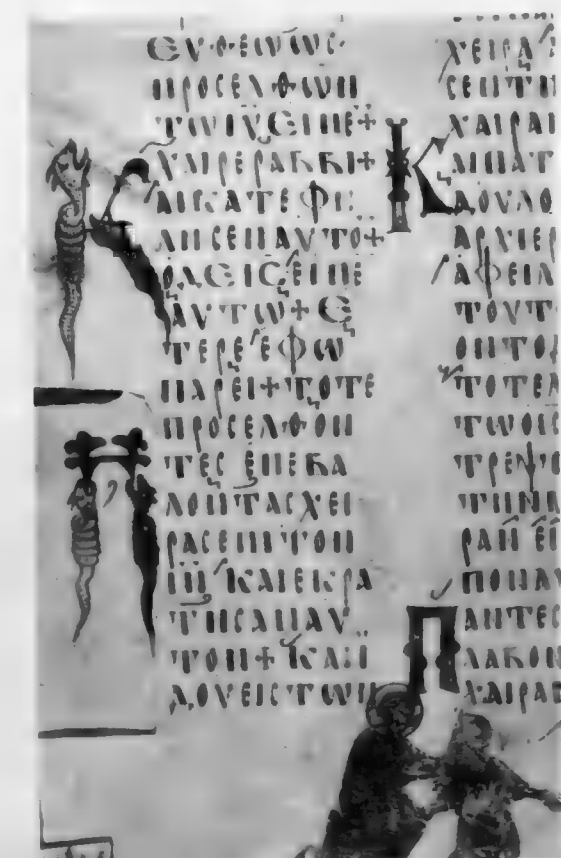 ΕΥΘΕΩC
ΠΡΟCΕΛΘΩΝ
ΤΩ ΙΥ ΕΙΠΕ+
ΧΑΙΡΕ ΡΑΒΒΙ+
ΚΑΙ ΚΑΤΕΦΙ
ΛΗCΕΝ ΑΥΤΟ+
Ο ΔΕ ΙC ΕΙΠΕ
ΑΥΤΩ+ Ε
ΤΕΡΕ ΕΦ Ω
ΠΑΡΕΙ+ ΤΟΤΕ
ΠΡΟCΕΛΘΟΝ
ΤΕC ΕΠΕΒΑ
ΛΟΝ ΤΑC ΧΕΙ
ΡΑC ΕΠΙ ΤΟΝ
ΙΝ ΚΑΙ ΕΚΡΑ
ΤΗCΑΝ ΑΥ
ΤΟΝ+ ΚΑΙ Ϊ
ΔΟΥ ΕΙC ΤΩΝ
ΧΕΙΡΑ
CΕΝ ΤΗ
ΧΑΙΡΑ
ΚΑΙ ΠΑΤ
ΔΟΥΛΟ
ΑΡΧΙΕΡ
ΑΦΕΙΛ
ΤΟΥ Τ
ΟΝ ΤΟ
ΤΟΤΕ Λ
ΤΩ Ο ΙC
ΤΡΕΨΟ
ΤΗΝ Μ
ΡΑΝ ΕΙ
ΠΟΝ ΑΥ
ΠΑΝΤΕC
ΛΑΒΟΝ
ΧΑΙΡΑΝ